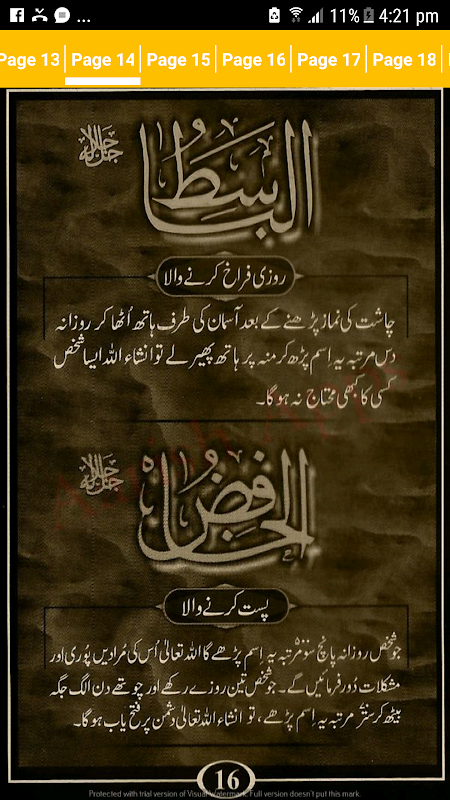 ... 11% 4:21 pm
Page 13 Page 14 Page 15 Page 16 Page 17 Page 18
الباسط جل جلالہ
روزی فراخ کرنے والا
چاشت کی نماز پڑھنے کے بعد آسمان کی طرف ہاتھ اُٹھا کر روزانہ
دس مرتبہ یہ اِسم پڑھ کر منہ پر ہاتھ پھیر لے تو انشاء اللہ ایسا شخص
کسی کا کبھی محتاج نہ ہوگا۔
الخافض جل جلالہ
پست کرنے والا
جو شخص روزانہ پانچ سو مرتبہ یہ اِسم پڑھے گا اللہ تعالیٰ اُس کی مُرادیں پوری اور
مشکلات دُور فرمائیں گے۔ جو شخص تین روزے رکھے اور چوتھے دن الگ جگہ
بیٹھ کر ستر مرتبہ یہ اِسم پڑھے، تو انشاء اللہ تعالیٰ دشمن پر فتح یاب ہوگا۔
16
Protected with trial version of Visual Watermark. Full version doesn't put this mark.